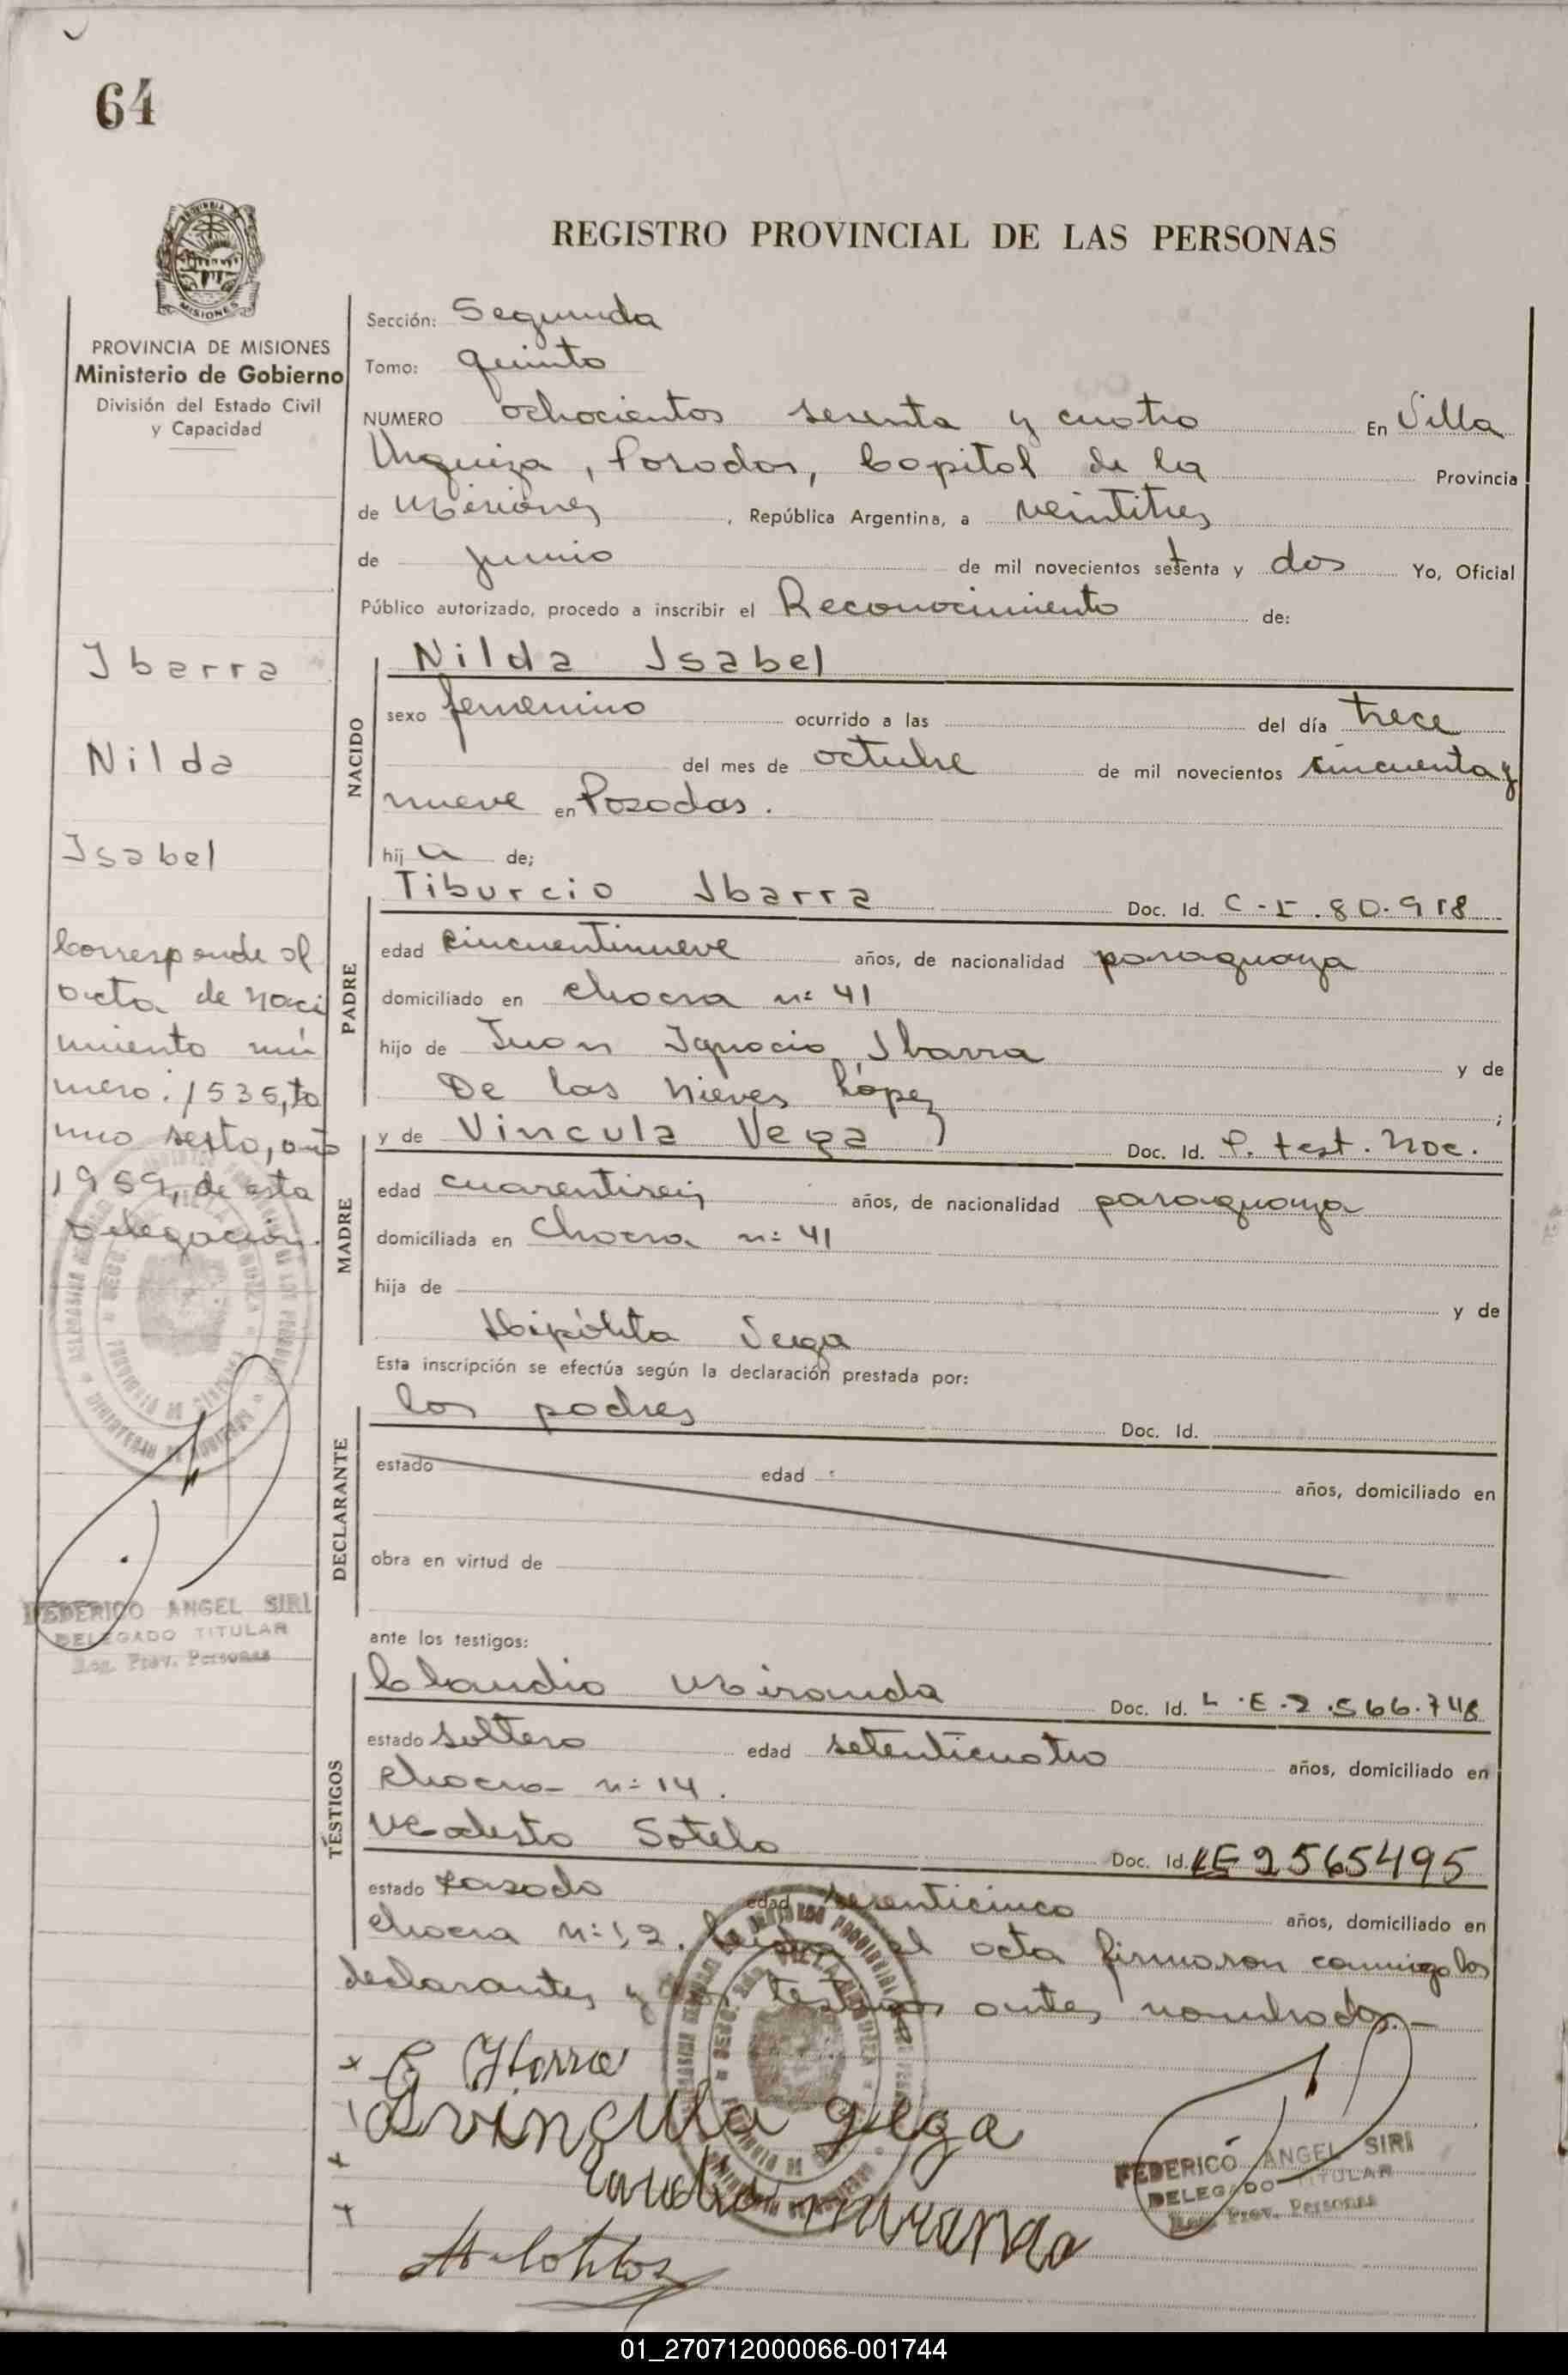 64
REGISTRO PROVINCIAL DE LAS PERSONAS
MISIONES
PROVINCIA DE MISIONES
Ministerio de Gobierno
División del Estado Civil
y Capacidad
Ibarra
Nilda
Isabel
Corresponde al
acta de naci
miento nú
mero: 1535, to
mo sexto, año
1959, de esta
Delegación.
FEDERICO ANGEL SIRI
DELEGADO TITULAR
Reg. Prov. Personas
Sección: Segunda
Tomo: quinto
NUMERO ochocientos sesenta y cuatro En Villa
Urquiza, Posadas, Capital de la Provincia
de Misiones, República Argentina, a veintitres
de junio de mil novecientos setenta y dos Yo, Oficial
Público autorizado, procedo a inscribir el Reconocimiento de:
NACIDO
Nilda Isabel
sexo femenino ocurrido a las del día trece
del mes de octubre de mil novecientos cincuenta y
nueve en Posadas.
hij a de;
PADRE
Tiburcio Ibarra Doc. Id. C-I.80.918
edad cincuentinueve años, de nacionalidad paraguaya
domiciliado en chacra n: 41
hijo de Juan Ignacio Ibarra y de
De las Nieves López ;
MADRE
y de Vincula Vega Doc. Id. P. test. Nac.
edad cuarentiseis años, de nacionalidad paraguaya
domiciliada en Chacra n: 41
hija de y de
Hipólita Vega
Esta inscripción se efectúa según la declaración prestada por:
DECLARANTE
los padres Doc. Id.
estado edad años, domiciliado en
obra en virtud de
ante los testigos:
TESTIGOS
Claudio Miranda Doc. Id. L.E-2.566.748
estado soltero edad setenticuatro años, domiciliado en
chacra n: 14.
Modesto Sotelo Doc. Id. LE 2565495
estado casado edad sesenticinco años, domiciliado en
chacra n: 12. Leida el acta firmaron conmigo los
declarantes y los testigos antes nombrados.-
Ibarra
vincula
miranda
FEDERICO ANGEL SIRI
DELEGADO TITULAR
Reg. Prov. Personas
01_270712000066-001744